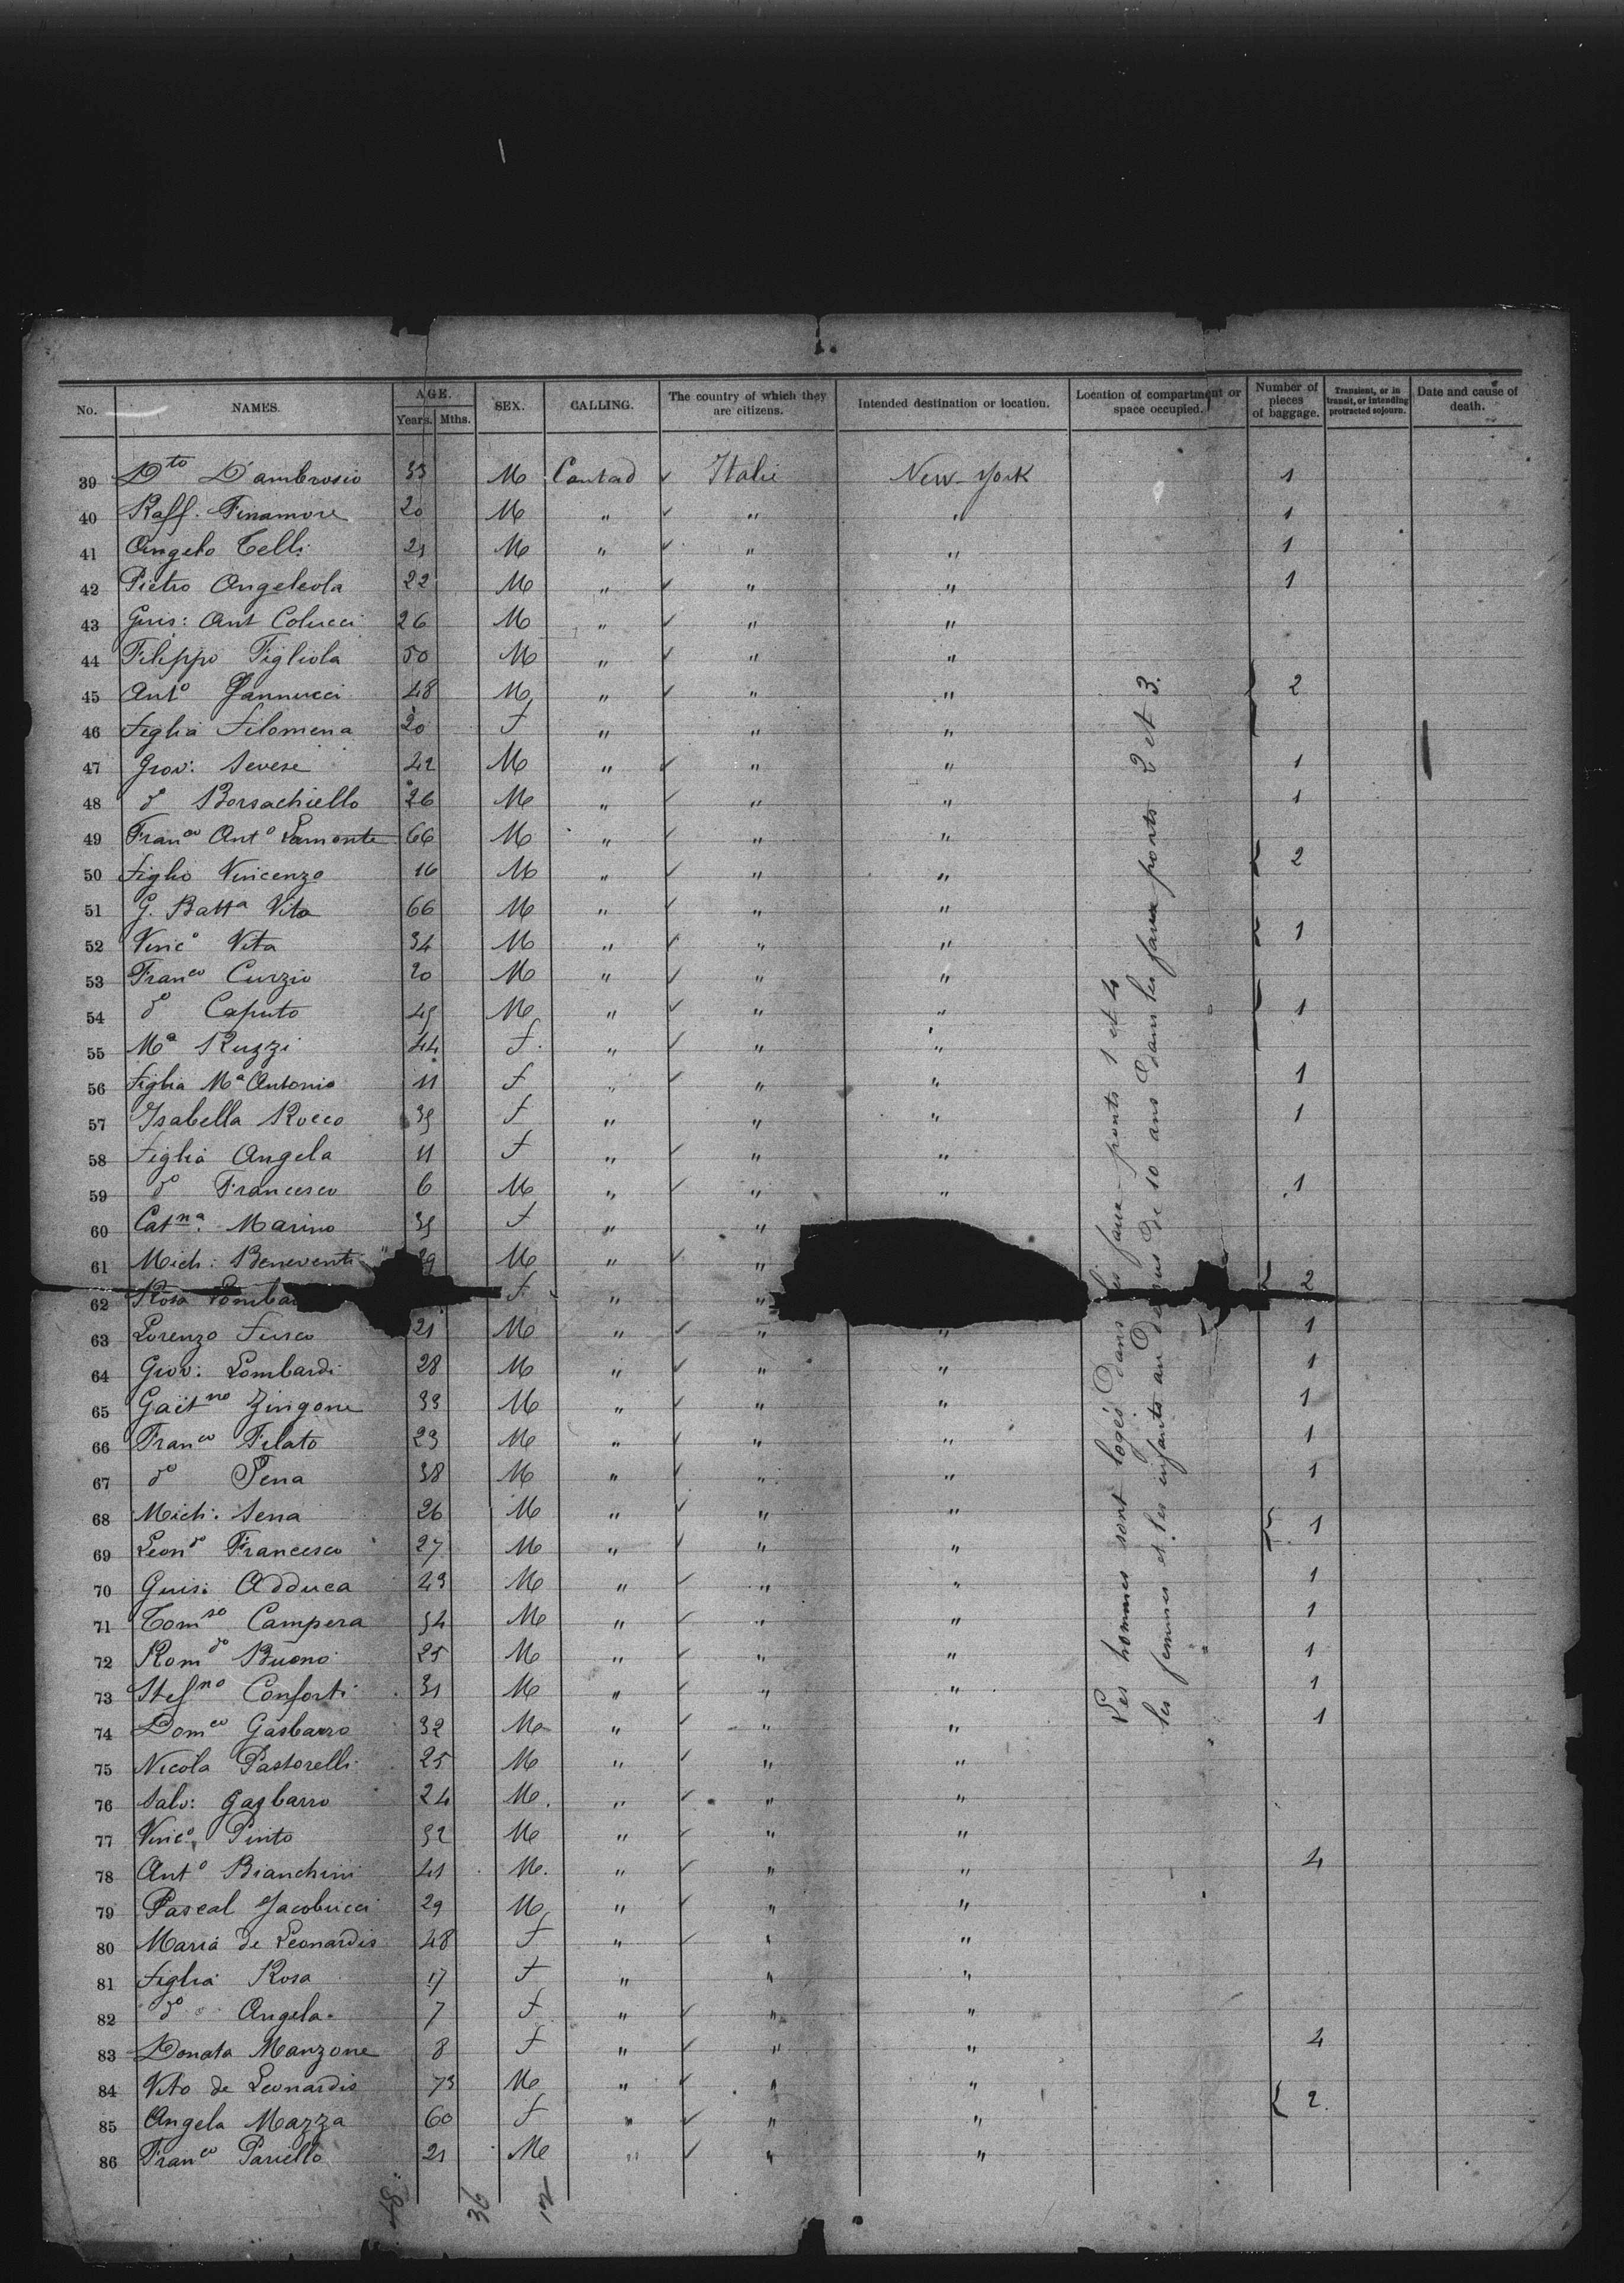 No. NAMES. AGE. Years. Mths. SEX. CALLING. The country of which they are citizens. Intended destination or location. Location of compartment or space occupied. Number of pieces of baggage. Transient, or in transit, or intending protracted sojourn. Date and cause of death.
39 Dto D'ambrosio 33 M Contad ✓ Italie New-York 1
40 Raff. Finamore 20 M " ✓ " " 1
41 Angelo Telli 21 M " ✓ " " 1
42 Pietro Angeleola 22 M " ✓ " " 1
43 Guis: Ant Colucci 26 M " ✓ " "
44 Filippo Figliola 50 M " ✓ " "
45 Anto Jannucci 48 M " ✓ " " 2
46 figlia Filomena 20 F " " "
47 Giov: Sevese 42 M " ✓ " " 1
48 do Borsachiello 26 M " ✓ " " 1
49 Franco Anto Lamonte 66 M " ✓ " "
50 figlio Vincenzo 16 M " ✓ " " 2
51 G. Batta Vita 66 M " ✓ " "
52 Vinco Vita 34 M " ✓ " " 1
53 Franco Curzio 20 M " ✓ " "
54 do Caputo 45 M " ✓ " " 1
55 Ma Ruzzi 44 F " ✓ " "
56 figlia Ma Antonia 11 F " ✓ " " 1
57 Isabella Rocco 35 F " " " 1
58 figlia Angela 11 F " ✓ " "
59 do Francesco 6 M " ✓ " " 1
60 Catna. Marino 35 F " "
61 Mich: Beneventi M " ✓ "
62 Rosa F " " 2
63 Lorenzo Furco 21 M " ✓ " " 1
64 Giov: Lombardi 28 M " ✓ " " 1
65 Gaetno Zingone 33 M " ✓ " " 1
66 Franco Filato 23 M " ✓ " " 1
67 do Pena 38 M " ✓ " " 1
68 Mich: Sena 26 M " ✓ " " 1
69 Leondo Francesco 27 M " ✓ " "
70 Guis: Adduca 43 M " ✓ " " 1
71 Tomso Campera 34 M " ✓ " " 1
72 Romdo Buono 25 M " ✓ " " 1
73 Stefno Conforti 31 M " ✓ " " 1
74 Domco Gasbarro 32 M " ✓ " " 1
75 Nicola Pastorelli 25 M " ✓ " "
76 Salv: Gasbarro 24 M. " ✓ " "
77 Vinco. Pinto 32 M " ✓ " "
78 Anto Bianchini 41 M. " ✓ " " 4
79 Pascal Jacobucci 29 M " ✓ " "
80 Maria de Leonardis 48 F " ✓ " "
81 figlia Rosa 17 F " " "
82 do Angela 7 F " ✓ " "
83 Donata Manzone 8 F " ✓ " " 4
84 Vito de Leonardis 73 M " ✓ " "
85 Angela Mazza 60 F " ✓ " " 2.
86 Franco Pariello 21 M " ✓ " "
Les hommes sont logés dans les faux-ponts 1 et 4
les femmes et les enfants au de 10 ans dans les faux ponts 2 et 3.
48 36 12